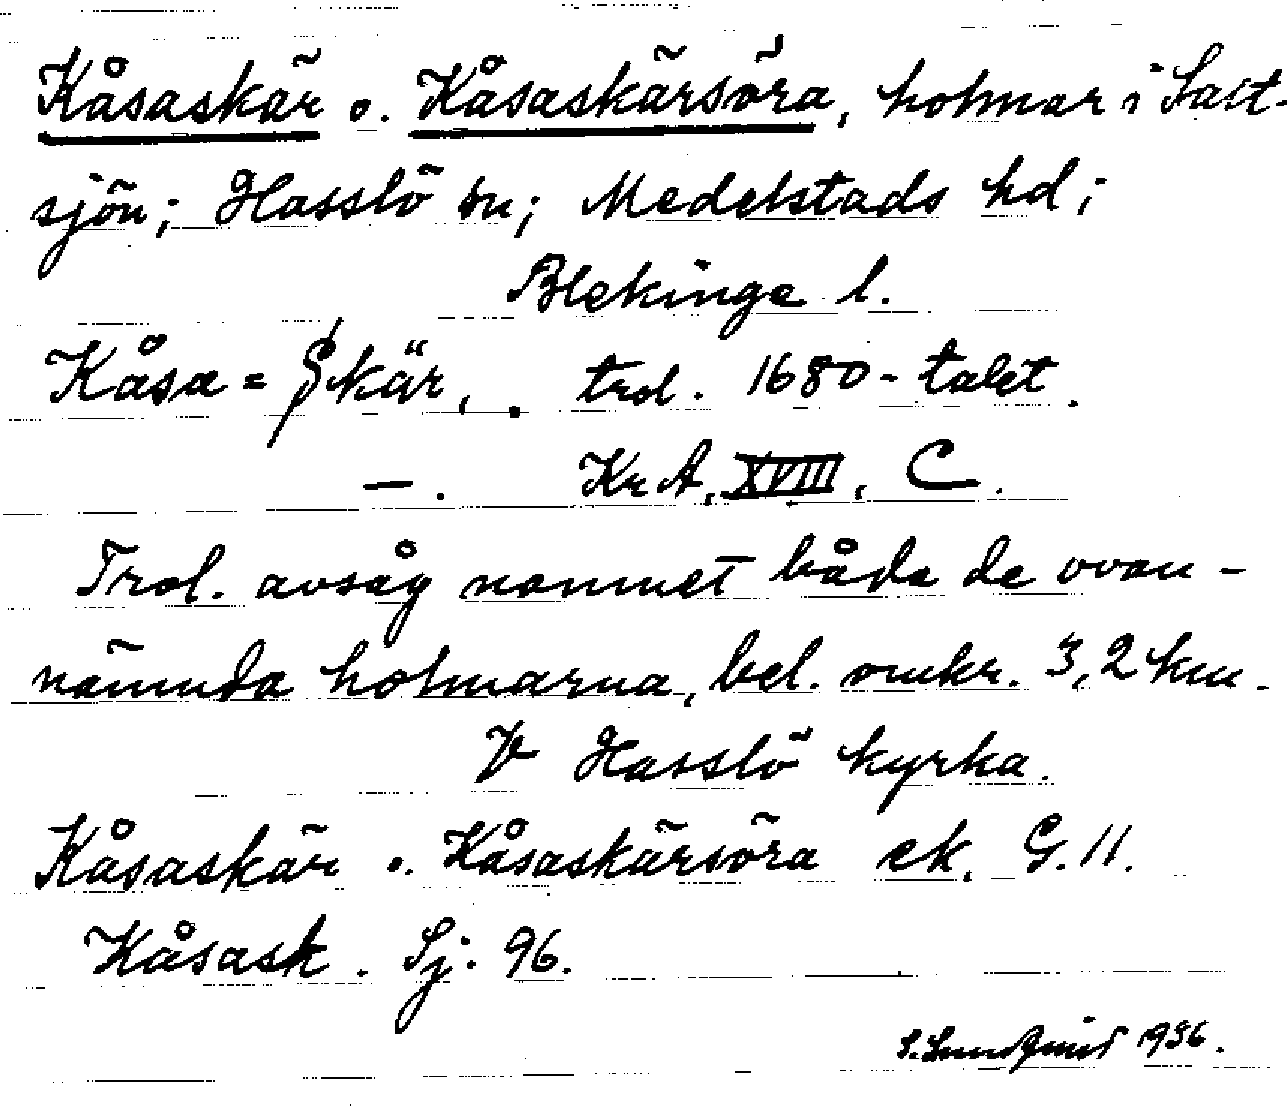 Kåsaskär o. Kåsaskärsöra, holmar i Salt-
sjön; Hasslö sn; Medelstads hd;
Blekinge l.
Kåsa = Skär, . trol. 1680-talet.
—. KrA, XVIII, C.
Trol. avsåg namnet båda de ovan-
nämnda holmarna, bel. omkr. 3,2 km.
V Hasslö kyrka.
Kåsaskär o. Kåsaskärsöra ek. G. 11.
Kåsask. Sj. 96.
S. Lundquist 1936.